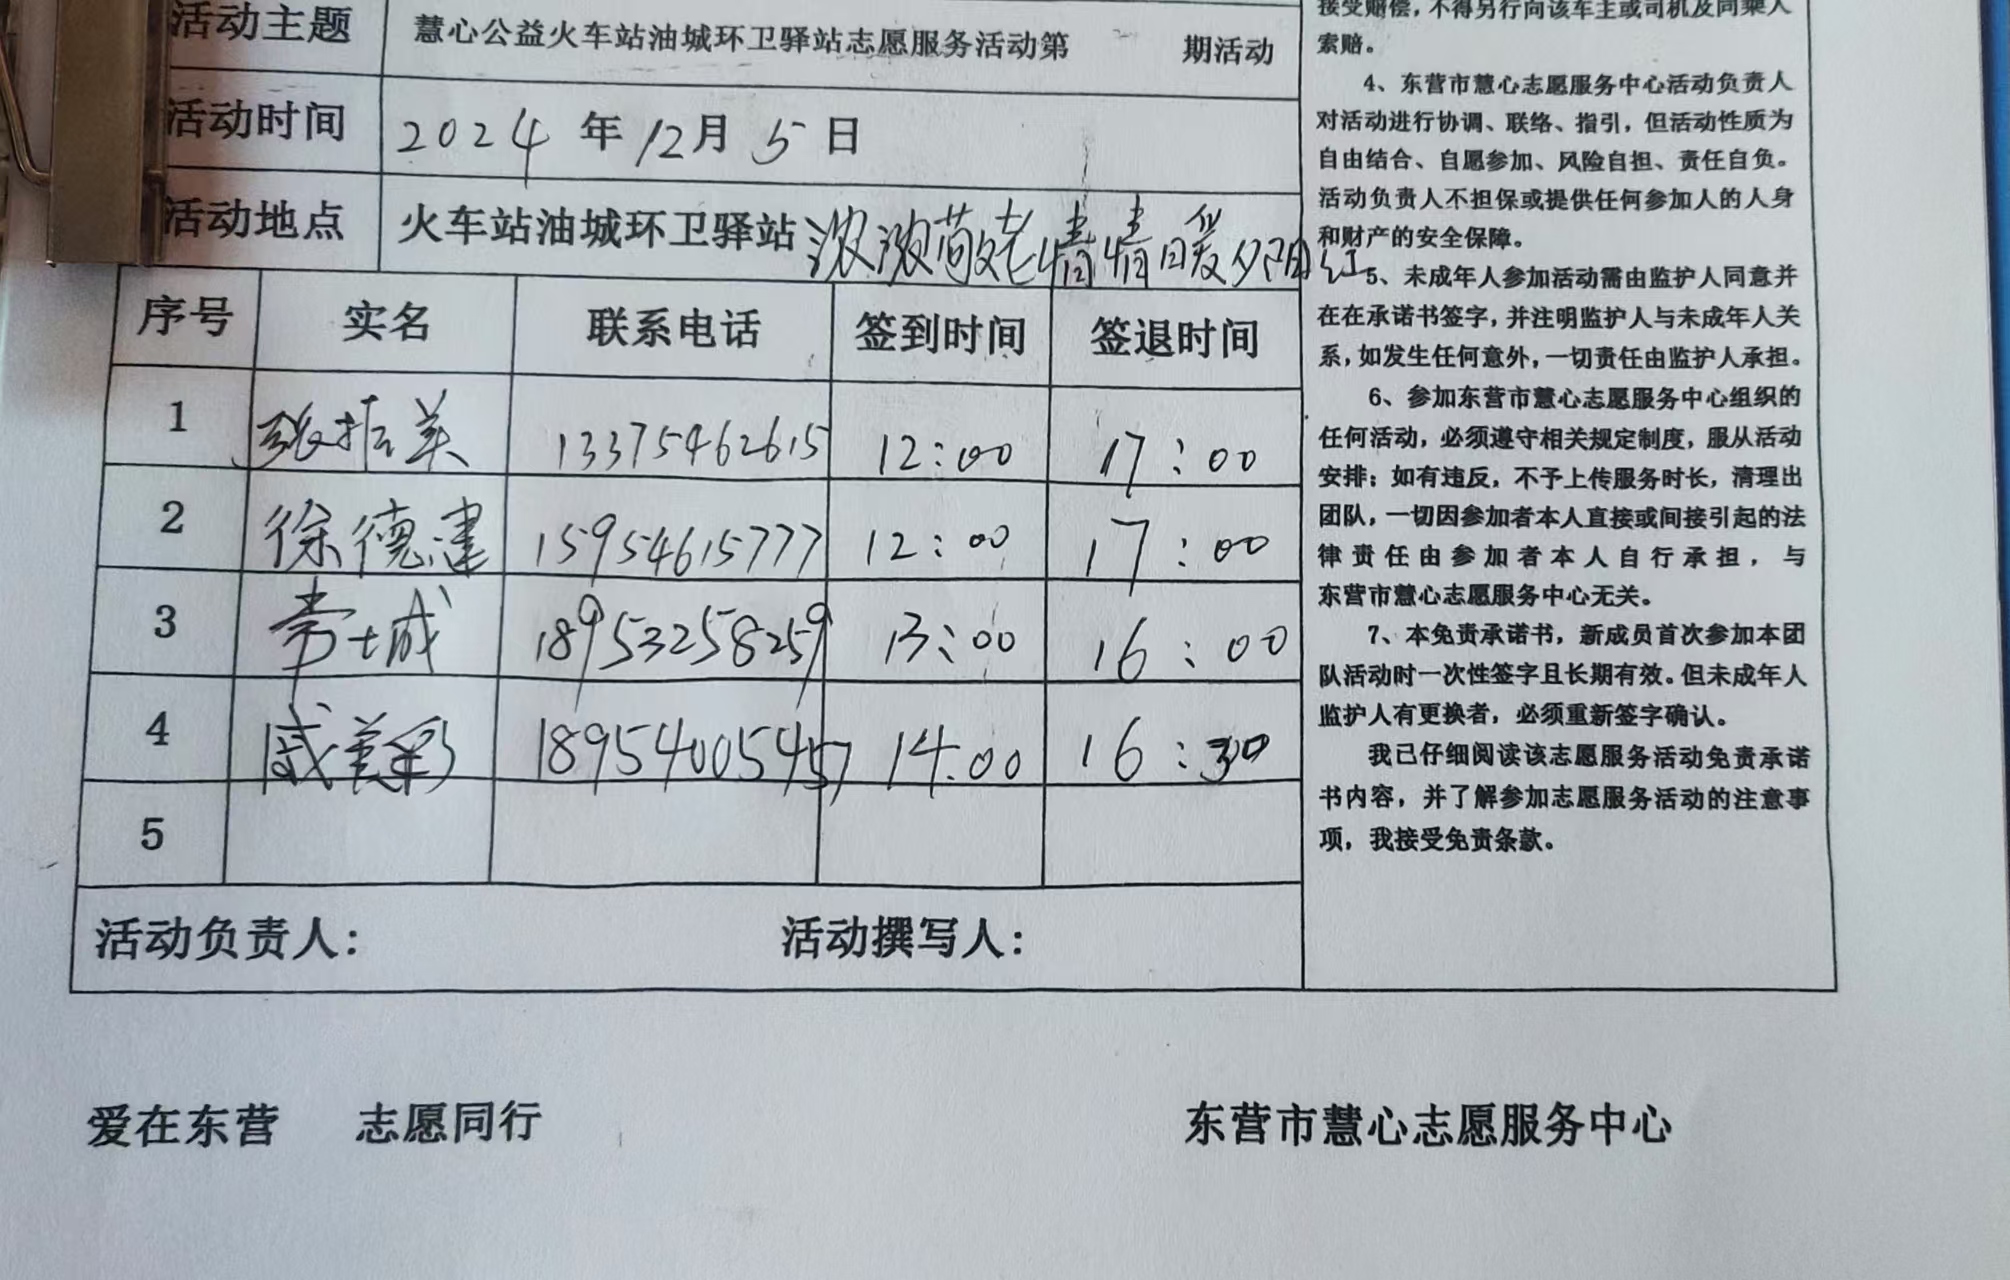 活动主题 慧心公益火车站油城环卫驿站志愿服务活动第 期活动
活动时间 2024 年 12 月 5 日
活动地点 火车站油城环卫驿站 浓浓敬老情情暖夕阳红
序号 实名 联系电话 签到时间 签退时间
1 张振美 13375462615 12:00 17:00
2 徐德建 15954615777 12:00 17:00
3 常士成 18953258259 13:00 16:00
4 戚美彩 18954005457 14:00 16:30
5
活动负责人： 活动撰写人：
接受赔偿，不得另行向该车主或司机及同乘人
索赔。
4、东营市慧心志愿服务中心活动负责人
对活动进行协调、联络、指引，但活动性质为
自由结合、自愿参加、风险自担、责任自负。
活动负责人不担保或提供任何参加人的人身
和财产的安全保障。
5、未成年人参加活动需由监护人同意并
在在承诺书签字，并注明监护人与未成年人关
系，如发生任何意外，一切责任由监护人承担。
6、参加东营市慧心志愿服务中心组织的
任何活动，必须遵守相关规定制度，服从活动
安排；如有违反，不予上传服务时长，清理出
团队，一切因参加者本人直接或间接引起的法
律责任由参加者本人自行承担，与
东营市慧心志愿服务中心无关。
7、本免责承诺书，新成员首次参加本团
队活动时一次性签字且长期有效。但未成年人
监护人有更换者，必须重新签字确认。
我已仔细阅读该志愿服务活动免责承诺
书内容，并了解参加志愿服务活动的注意事
项，我接受免责条款。
爱在东营 志愿同行 东营市慧心志愿服务中心